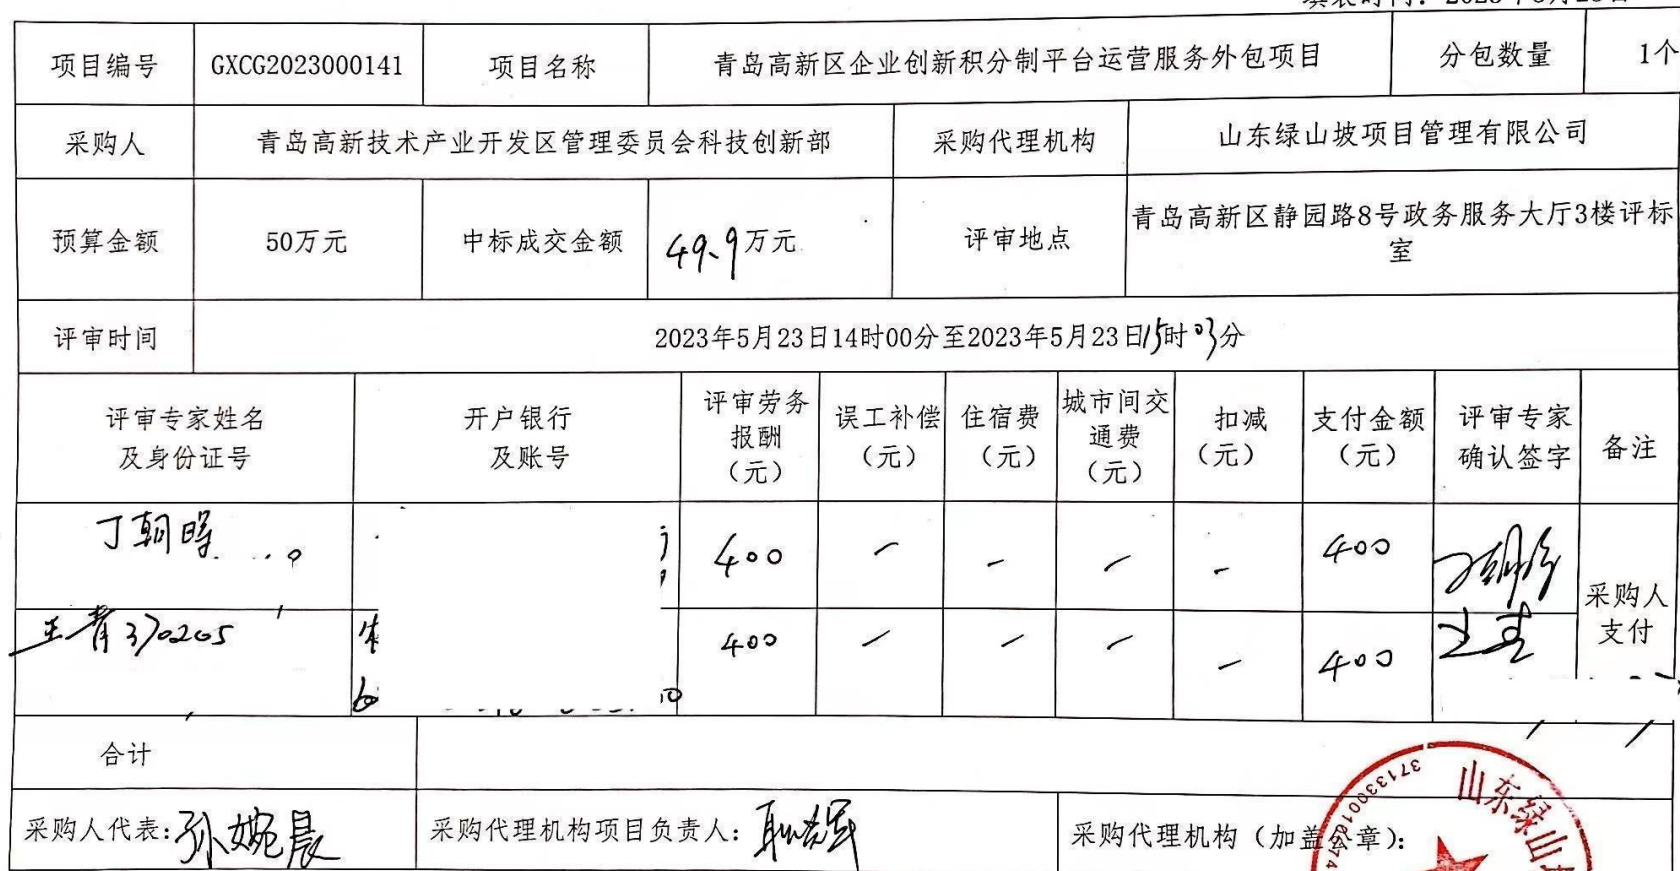 填表时间：2023年5月23日
项目编号 GXCG2023000141 项目名称 青岛高新区企业创新积分制平台运营服务外包项目 分包数量 1个
采购人 青岛高新技术产业开发区管理委员会科技创新部 采购代理机构 山东绿山坡项目管理有限公司
预算金额 50万元 中标成交金额 49.9万元 评审地点 青岛高新区静园路8号政务服务大厅3楼评标
室
评审时间 2023年5月23日14时00分至2023年5月23日15时03分
评审专家姓名
及身份证号
开户银行
及账号
评审劳务
报酬
（元）
误工补偿
（元）
住宿费
（元）
城市间交
通费
（元）
扣减
（元）
支付金额
（元）
评审专家
确认签字
备注
丁朝晖 400 — — — — 400
王青370205 400 — — — — 400 王青
采购人
支付
合计
采购人代表：孙婉晨 采购代理机构项目负责人： 采购代理机构（加盖公章）：
山东绿山